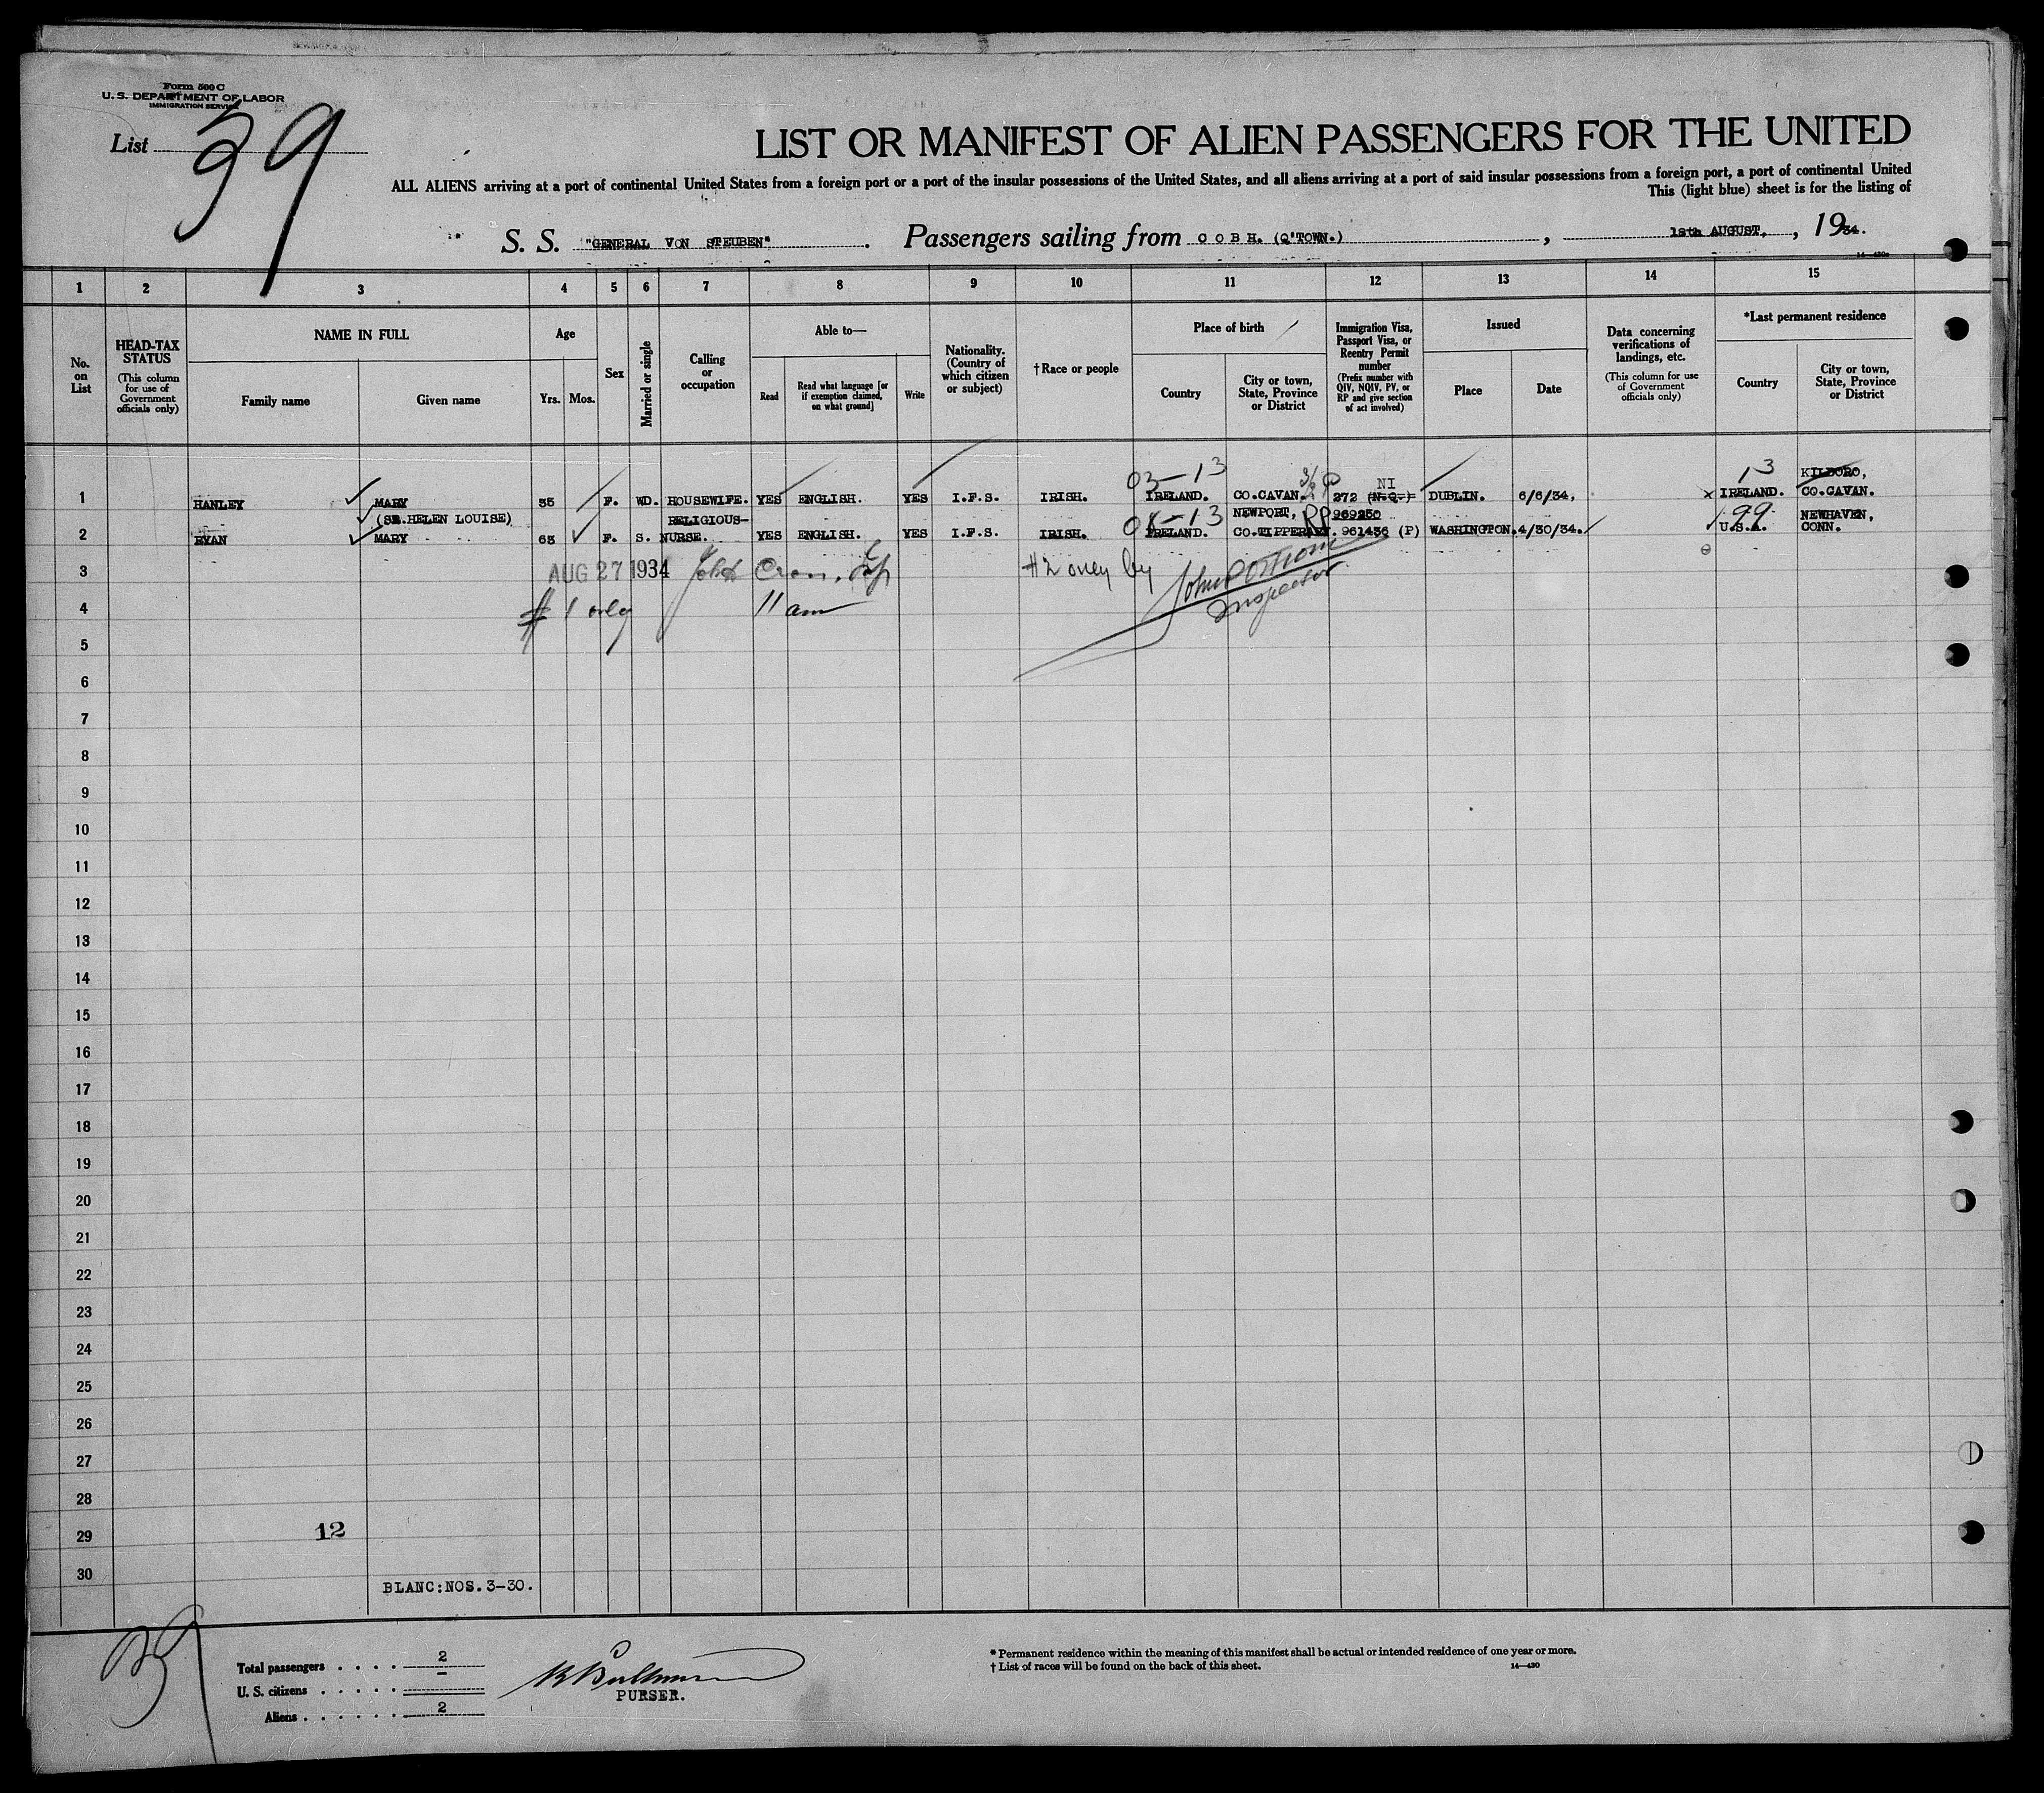 Form 500 C
U. S. DEPARTMENT OF LABOR
IMMIGRATION SERVICE
List 39
LIST OR MANIFEST OF ALIEN PASSENGERS FOR THE UNITED
ALL ALIENS arriving at a port of continental United States from a foreign port or a port of the insular possessions of the United States, and all aliens arriving at a port of said insular possessions from a foreign port, a port of continental United
This (light blue) sheet is for the listing of
S. S. "GENERAL VON STEUBEN". Passengers sailing from COBH. (Q'TOWN.), 18th AUGUST., 1934.
14—430
1 2 3 4 5 6 7 8 9 10 11 12 13 14 15
No. on List
HEAD-TAX STATUS
(This column for use of Government officials only)
NAME IN FULL
Family name
Given name
Age
Yrs.
Mos.
Sex
Married or single
Calling or occupation
Able to—
Read
Read what language [or if exemption claimed, on what ground]
Write
Nationality. (Country of which citizen or subject)
†Race or people
Place of birth
Country
City or town, State, Province or District
Immigration Visa, Passport Visa, or Reentry Permit number
(Prefix number with QIV, NQIV, PV, or RP and give section of act involved)
Issued
Place
Date
Data concerning verifications of landings, etc.
(This column for use of Government officials only)
*Last permanent residence
Country
City or town, State, Province or District
03-13 NI 13 KILDORO,
1 HANLEY MARY 35 F. WD. HOUSEWIFE. YES ENGLISH. YES I.F.S. IRISH. IRELAND. CO.CAVAN. 272 (N.Q.) DUBLIN. 6/6/34. x IRELAND. CO.CAVAN.
(SR.HELEN LOUISE) RELIGIOUS- 13 NEWPORT, RP 969250 99 NEWHAVEN,
2 RYAN MARY 63 F. S. NURSE. YES ENGLISH. YES I.F.S. IRISH. IRELAND. CO.TIPPERARY. 961436 (P) WASHINGTON. 4/30/34. U.S.A. CONN.
3 AUG 27 1934 #2 only by
4 # 1 only 11 am Inspector
5
6
7
8
9
10
11
12
13
14
15
16
17
18
19
20
21
22
23
24
25
26
27
28
29 12
30 BLANC:NOS.3-30.
39
Total passengers . . . . 2
U. S. citizens . . . . . –
Aliens . . . . . . 2
PURSER.
* Permanent residence within the meaning of this manifest shall be actual or intended residence of one year or more.
† List of races will be found on the back of this sheet.
14—430